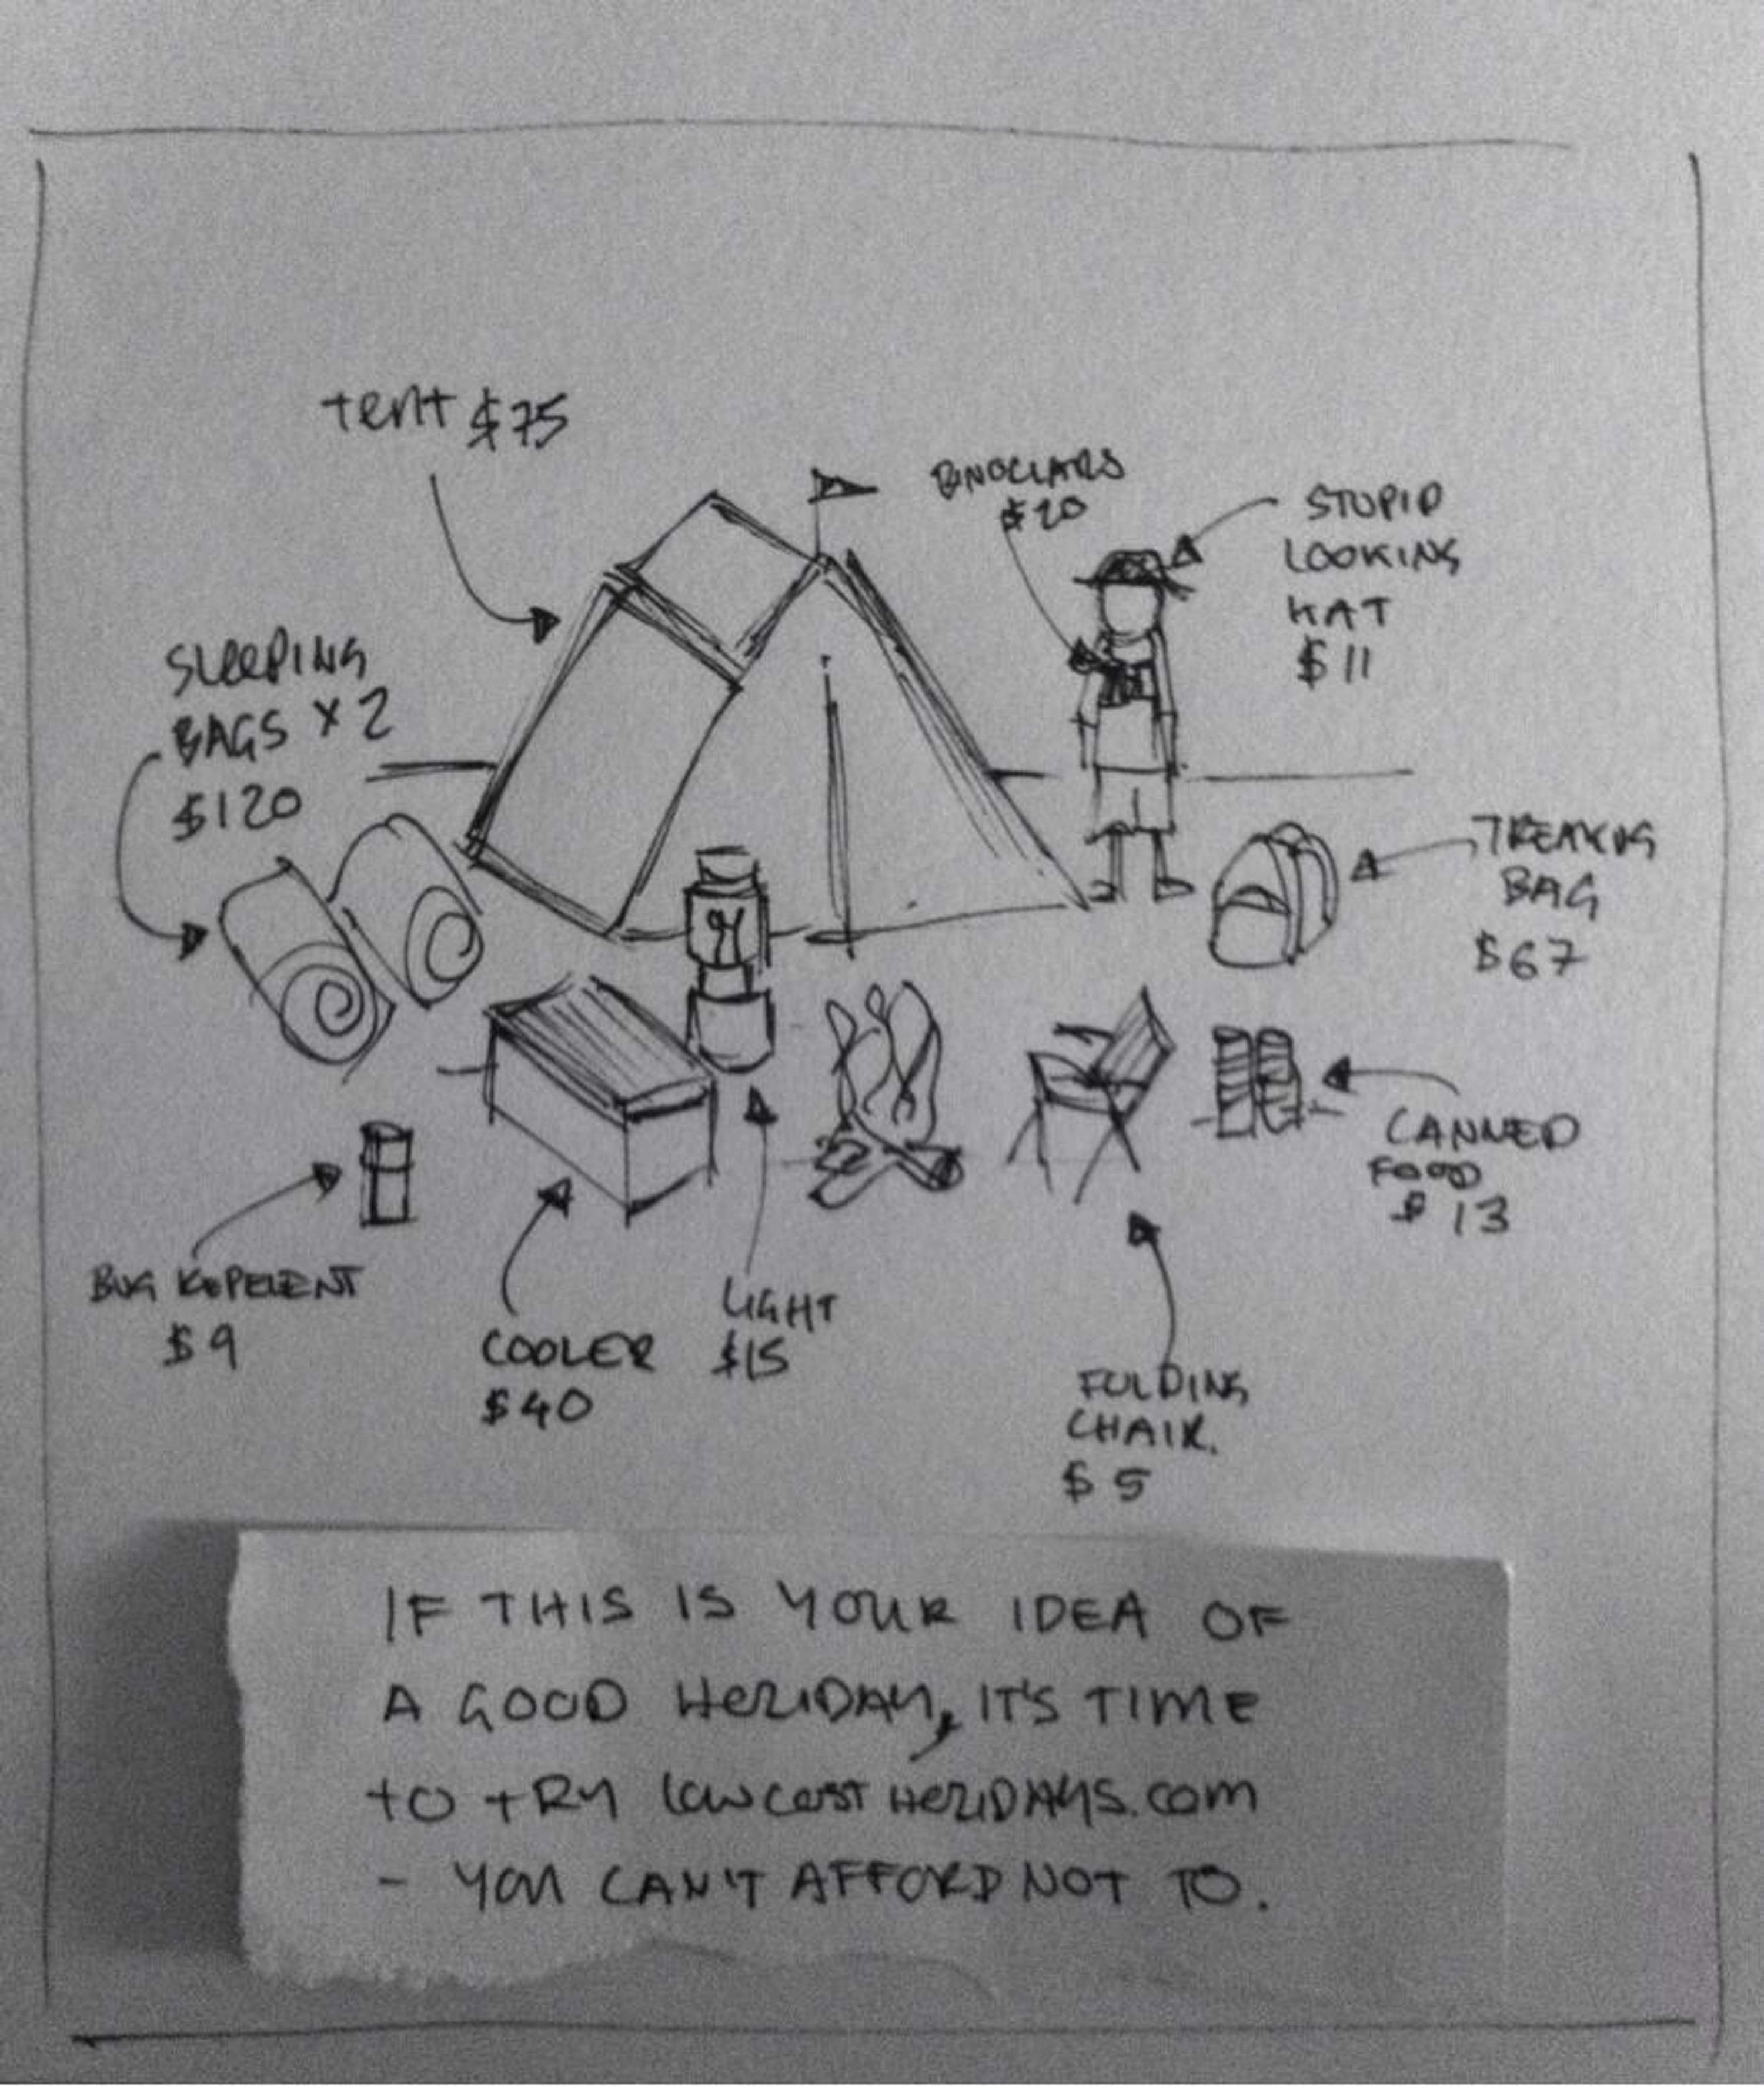 tent $75
BINOCLARS
$20
STUPID
LOOKING
HAT
$11
SLEEPING
BAGS X 2
$120
TREAKING
BAG
$67
CANNED
FOOD
$13
BUG REPELENT
$9
COOLER
$40
LIGHT
$15
FOLDING
CHAIR.
$5
IF THIS IS YOUR IDEA OF
A GOOD HOLIDAY, IT'S TIME
to tRY lowcost HOLIDAYS.com
- YOU CAN'T AFFORD NOT TO.